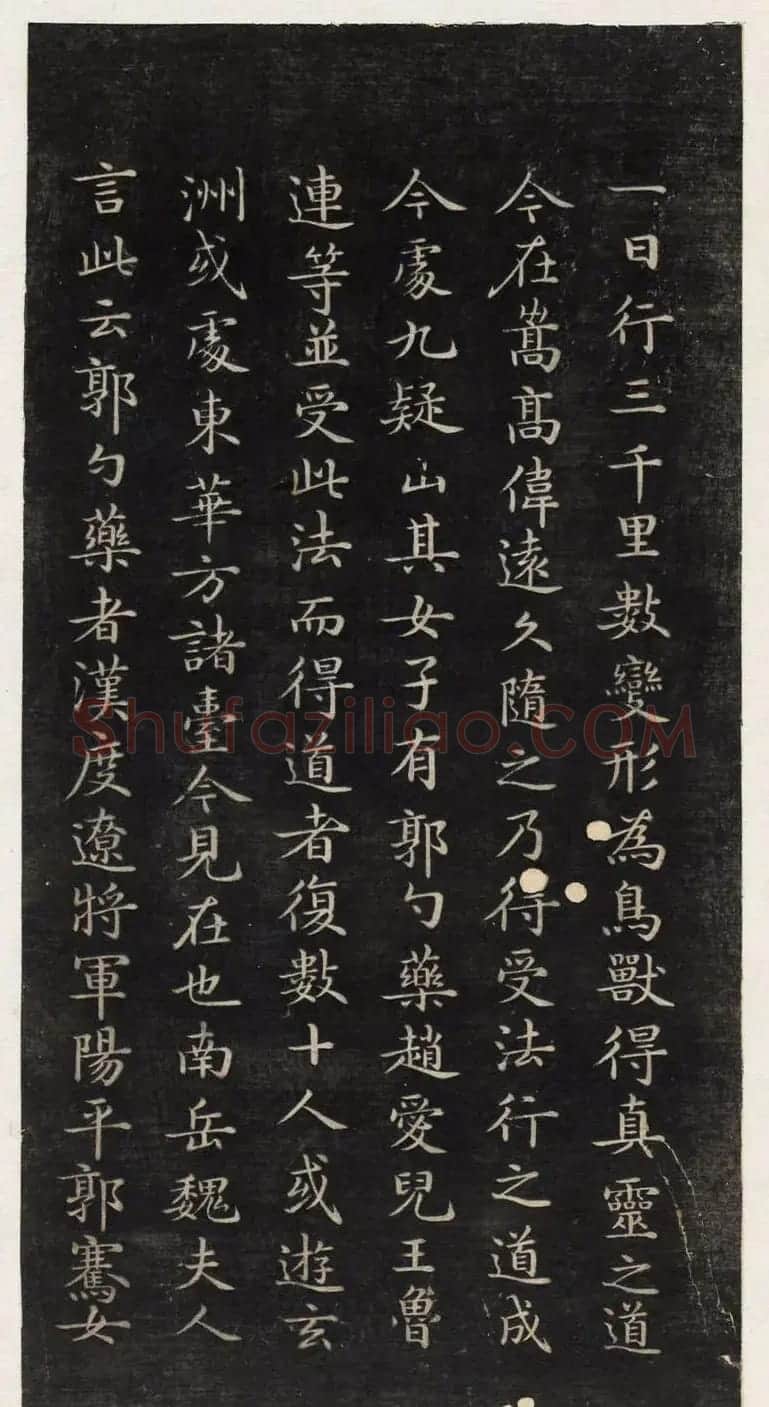 一日行三千里數變形為鳥獸得真靈之道
今在嵩高偉遠久隨之乃得受法行之道成
今處九疑山其女子有郭勺藥趙愛兒王魯
連等並受此法而得道者復數十人或遊玄
洲或處東華方諸臺今見在也南岳魏夫人
言此云郭勺藥者漢度遼將軍陽平郭騫女
Shufaziliao.COM